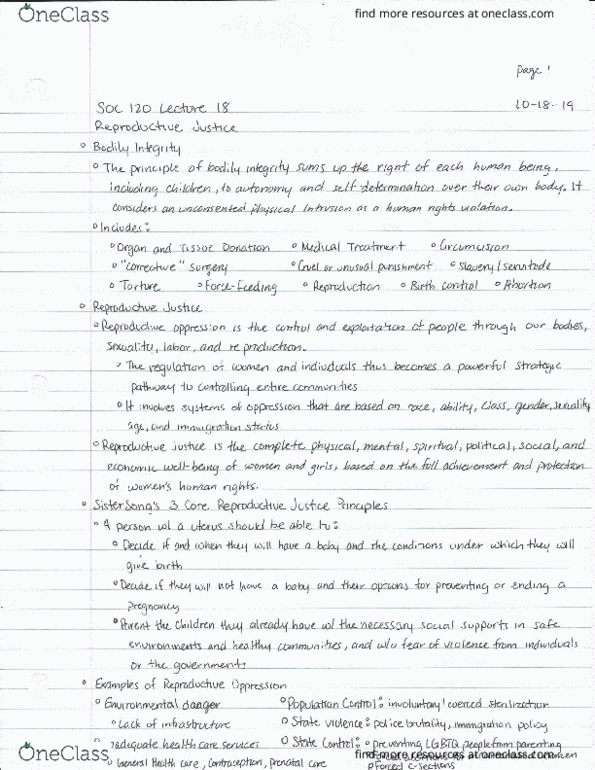 OneClass
find more resources at oneclass.com
page 1
SOC 120 Lecture 18
10-18-19
Reproductive Justice
Bodily Integrity
The principle of bodily integrity sums up the right of each human being,
including children, to autonomy and self-determination over their own body. It
considers an unconsented physical intrusion as a human rights violation.
Includes:
Organ and Tissue Donation Medical Treatment Circumcision
"corrective" surgery Cruel or unusual punishment Slavery/Servitude
Torture Force-feeding Reproduction Birth control Abortion
Reproductive Justice
Reproductive oppression is the control and exploitation of people through our bodies,
sexuality, labor, and reproduction.
The regulation of women and individuals thus becomes a powerful strategic
pathway to controlling entire communities
It involves systems of oppression that are based on race, ability, class, gender, sexuality
age, and immigration status
Reproductive justice is the complete physical, mental, spiritual, political, social, and
economic well-being of women and girls, based on the full achievement and protection
of women's human rights.
SisterSong's 3 Core Reproductive Justice Principles
A person w/ a uterus should be able to:
Decide if and when they will have a baby and the conditions under which they will
give birth
Decide if they will not have a baby and their options for preventing or ending a
pregnancy
Parent the children they already have w/ the necessary social supports in safe
environments and healthy communities, and w/o fear of violence from individuals
or the governments
Examples of Reproductive Oppression
Environmental danger Population Control: involuntary/coerced sterilization
Lack of infrastructure State violence: police brutality, immigration policy
inadequate health care services State Control: preventing LGBTQ people from parenting
General health care, contraception, prenatal care
Forced C-sections
OneClass
find more resources at oneclass.com